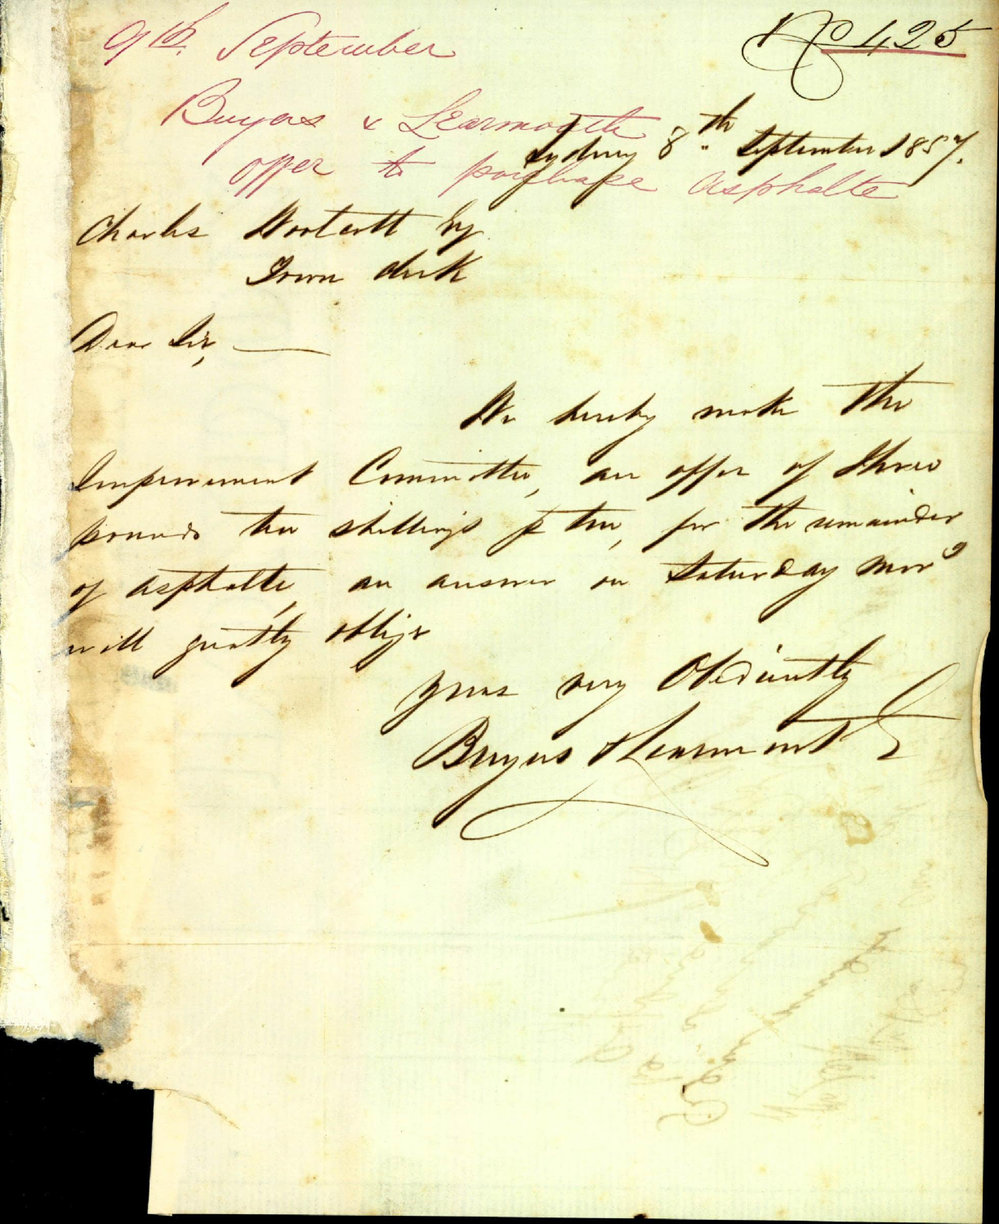 9th. September
No 425
Buyers & Learmonth
Sydney 8th September 1857.
offer to purchase Asphalte
Charles Woolcott Esq
Town Clerk
Dear Sir,
We hereby make the
Improvement Committee, an offer of three
pounds ten shillings p ton, for the remainder
of asphalte, an answer on Saturday Morg
will greatly oblige
Yours very Obediently
Buyers & Learmonth